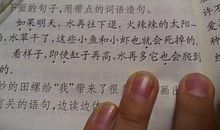 下面的句子,用带点的词语造句。
如果明天,水再往下退,火辣辣的太阳
,水草干了,这些小鱼和小虾也就会死掉的。
看样子,即使缸子再高,水再多它也会爬到
的。
的田螺给“我”带来了很
画出
关的语句,边读边体